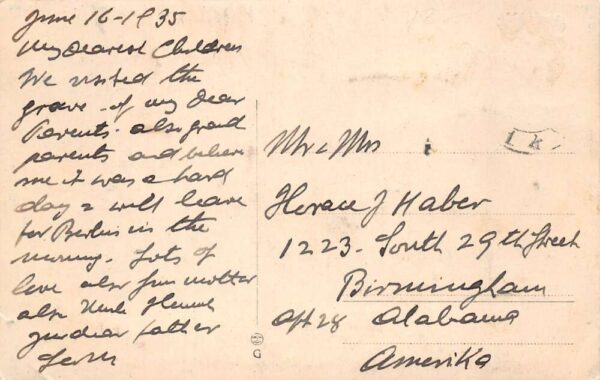 June 16-1935
My Dearest Children
We visited the
grave - of my Dear
Parents. also grand
parents and believe
me it was a hard
day & will leave
for Berlin in the
morning. Lots of
love also from mother
also Uncle
your dear father
Mr & Mrs
L K
Horace J Haber
1223. South 29th Street
Birmingham
Apt 28 Alabama
Amerika
G